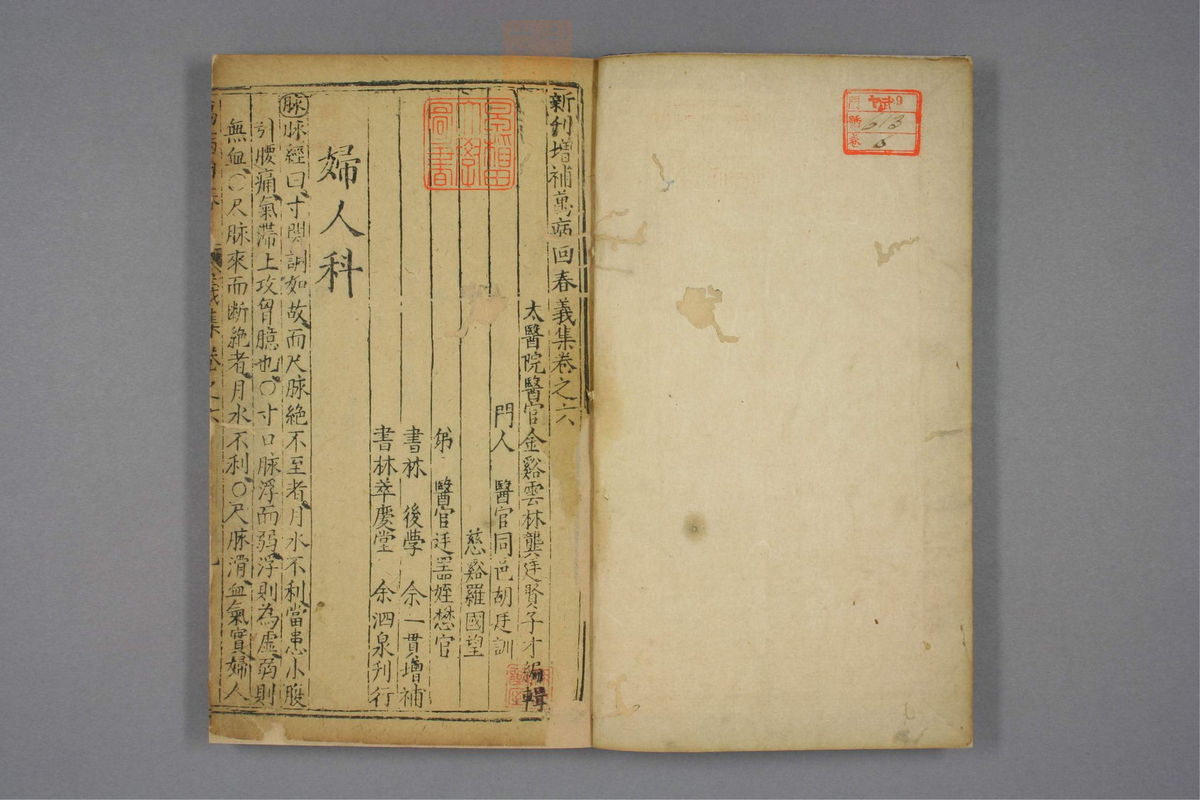 新刊增補萬病回春義集卷之六
太醫院醫官金谿雲林龔廷賢子才編輯
門人　醫官同邑胡廷訓
慈谿羅國望
弟　醫官廷器姪懋官
書林　後學　余一貫增補
書林萃慶堂　余泗泉刊行
婦人科
脉脉經曰寸関調如故而尺脉絶不至者月水不利當患小腹
引腰痛氣滯上攻胷臆也○寸口脉浮而弱浮則為虛弱則
無血○尺脉來而断絶者月水不利○尺脉滑血氣實婦人
義集卷之六
門 9
號 613
卷 6